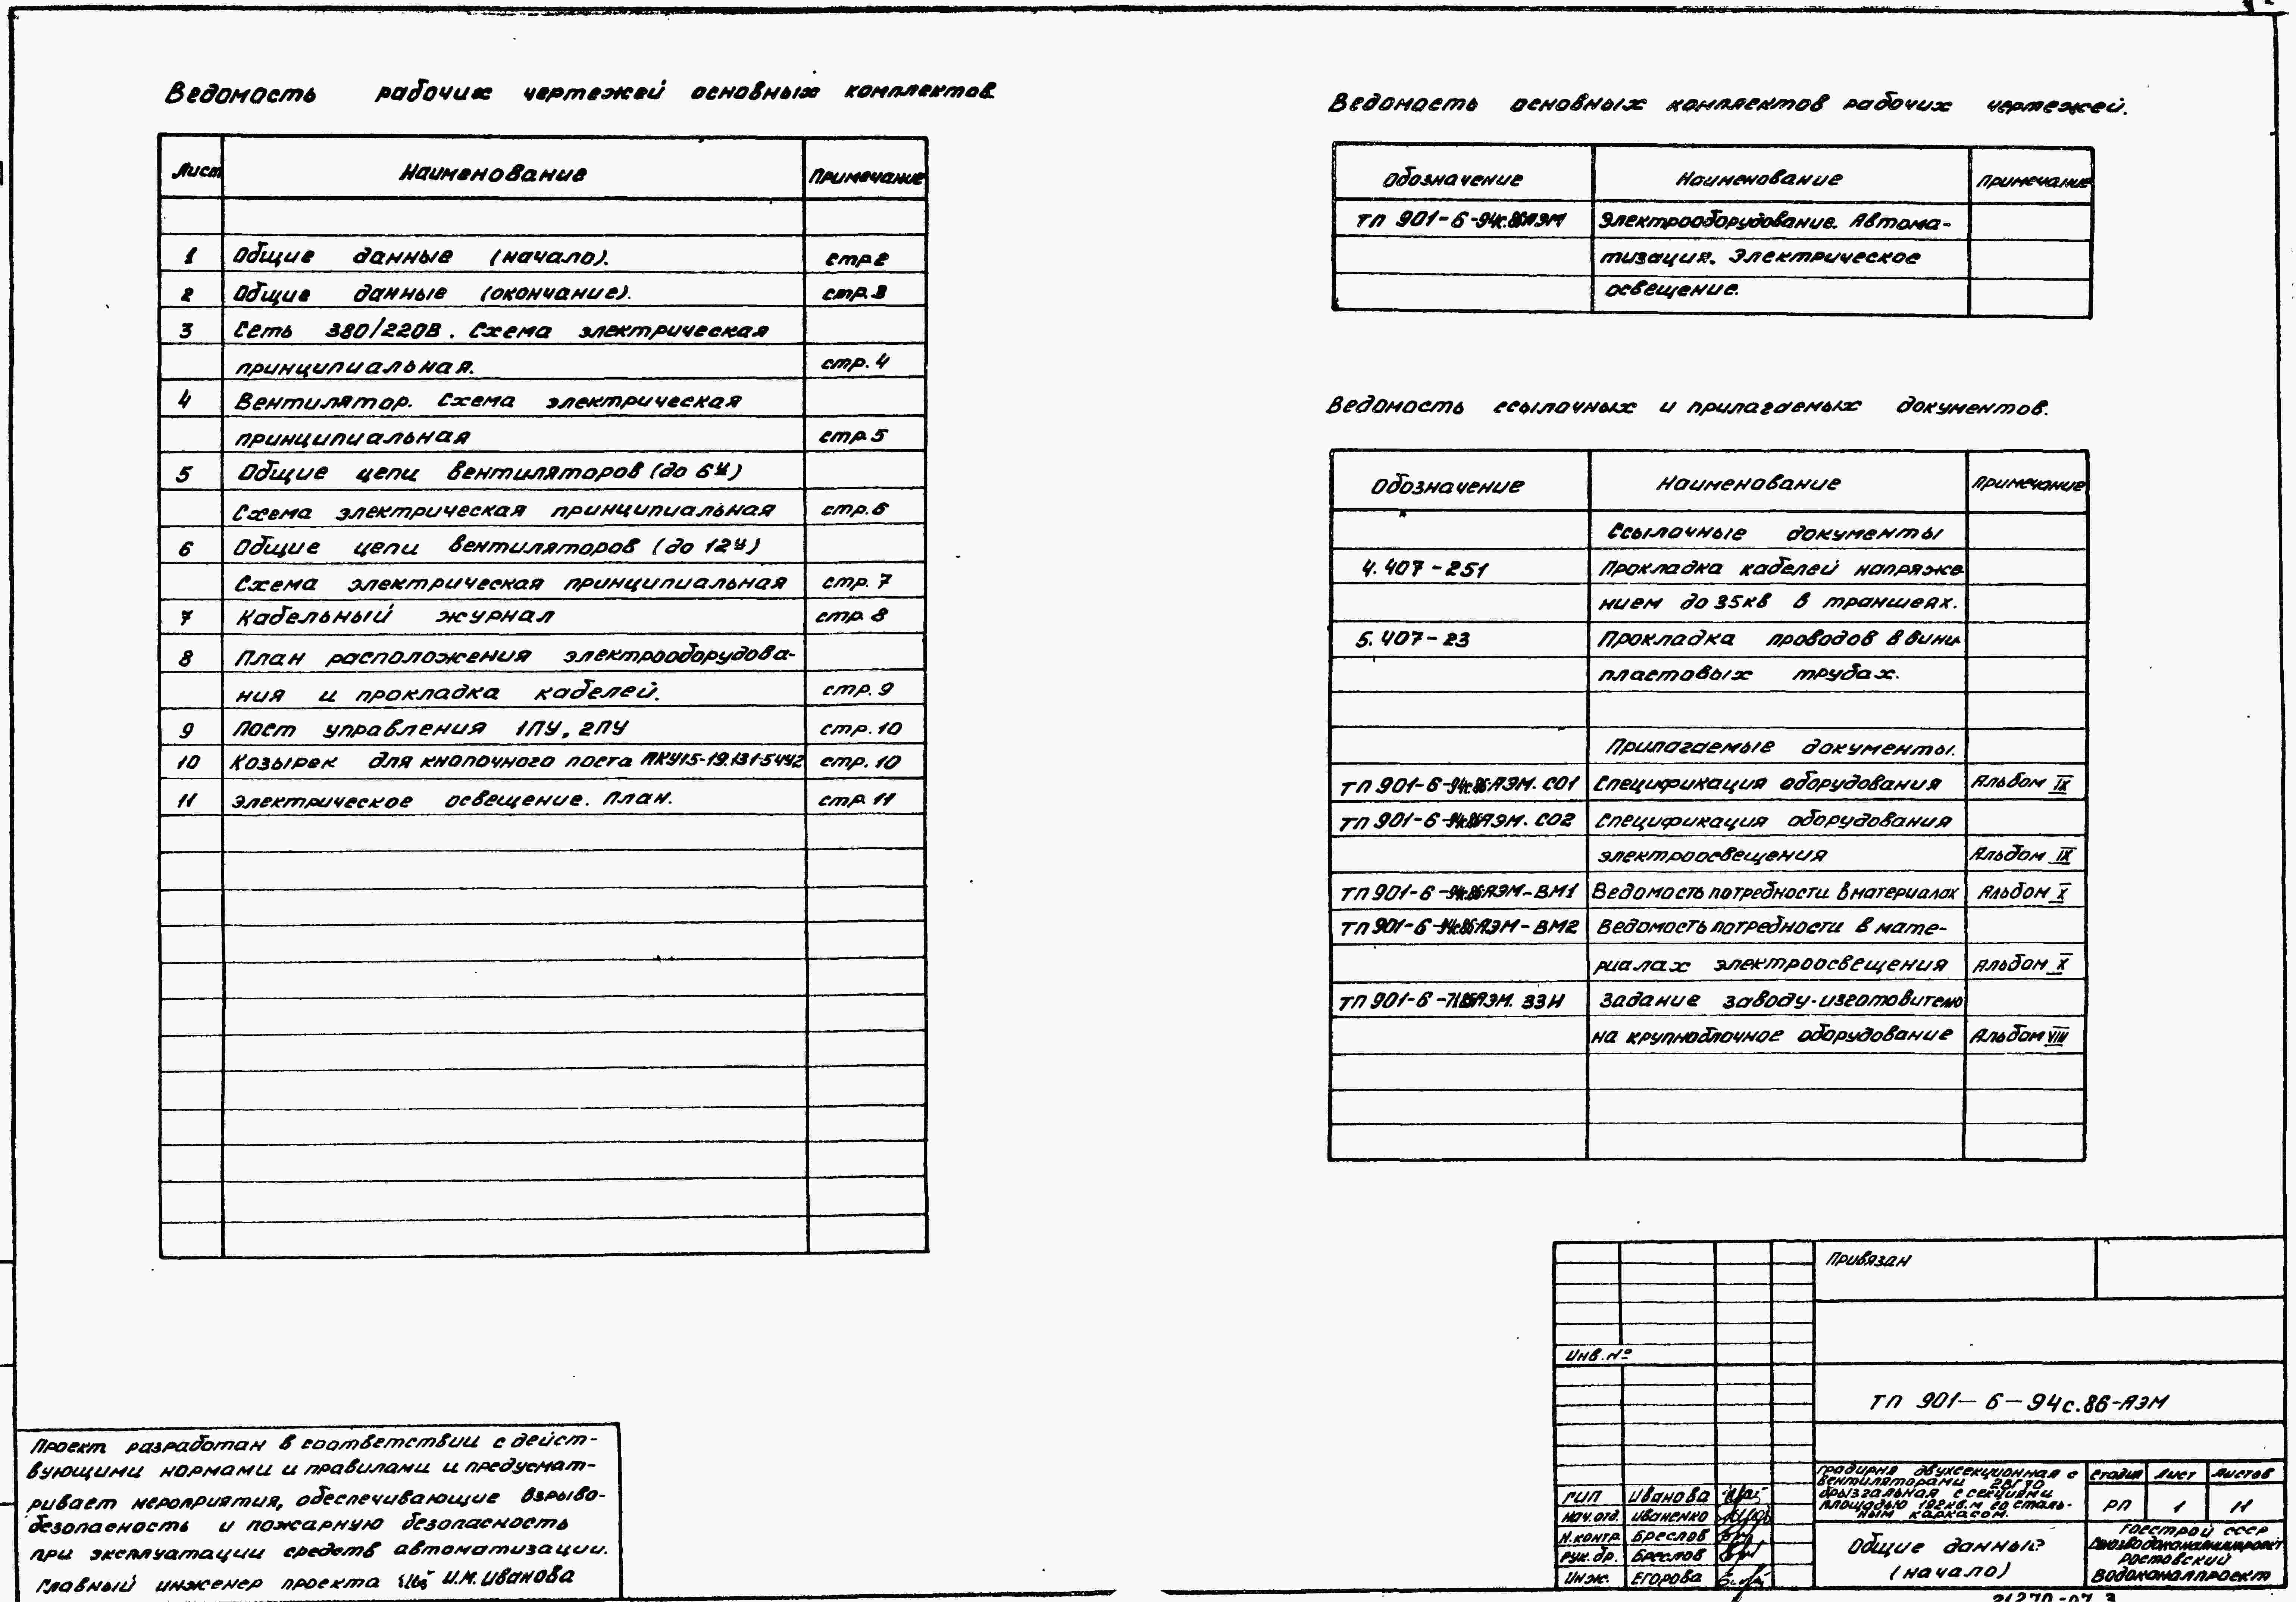 Ведомость рабочих чертежей основных комплектов
Лист Наименование Примечание
1 Общие данные (начало). стр.2
2 Общие данные (окончание). стр.3
3 Сеть 380/220В. Схема электрическая
принципиальная. стр.4
4 Вентилятор. Схема электрическая
принципиальная стр.5
5 Общие цепи вентиляторов (до 6и)
Схема электрическая принципиальная стр.6
6 Общие цепи вентиляторов (до 12и)
Схема электрическая принципиальная стр.7
7 Кабельный журнал стр.8
8 План расположения электрооборудова-
ния и прокладка кабелей. стр.9
9 Пост управления 1ПУ, 2ПУ стр.10
10 Козырек для кнопочного поста ПКУ15-19.131-54У2 стр.10
11 Электрическое освещение. План. стр.11
Ведомость основных комплектов рабочих чертежей.
Обозначение Наименование Примечание
ТП 901-6-94с.86АЭМ Электрооборудование. Автома-
тизация. Электрическое
освещение.
Ведомость ссылочных и прилагаемых документов.
Обозначение Наименование Примечание
Ссылочные документы
4.407-251 Прокладка кабелей напряже-
нием до 35кв в траншеях.
5.407-23 Прокладка проводов в вини-
пластовых трубах.
Прилагаемые документы.
ТП 901-6-94с.86АЭМ.СО1 Спецификация оборудования Альбом IX
ТП 901-6-94с.86АЭМ.СО2 Спецификация оборудования
электроосвещения Альбом IX
ТП 901-6-94с.86АЭМ-ВМ1 Ведомость потребности в материалах Альбом X
ТП 901-6-94с.86АЭМ-ВМ2 Ведомость потребности в мате-
риалах электроосвещения Альбом X
ТП 901-6- ЗЗИ Задание заводу-изготовителю
на крупноблочное оборудование Альбом VIII
Проект разработан в соответствии с дейст-
вующими нормами и правилами и предусмат-
ривает мероприятия, обеспечивающие взрыво-
безопасность и пожарную безопасность
при эксплуатации средств автоматизации.
Главный инженер проекта И.М. Иванова
Привязан
Инв.№
ТП 901-6-94с.86-АЭМ
Градирня двухсекционная с
вентиляторами 2ВГ70
брызгальная с секциями
площадью 192кв.м со сталь-
ным каркасом.
Стадия Лист Листов
РП 1 11
ГИП Иванова
Нач.отд. Иваненко
Н.контр. Бреслов
Рук.бр. Бреслов
Инж. Егорова
Общие данные
(начало)
Госстрой СССР
Союзводоканалниипроект
Ростовский
Водоканалпроект
21270-07 3